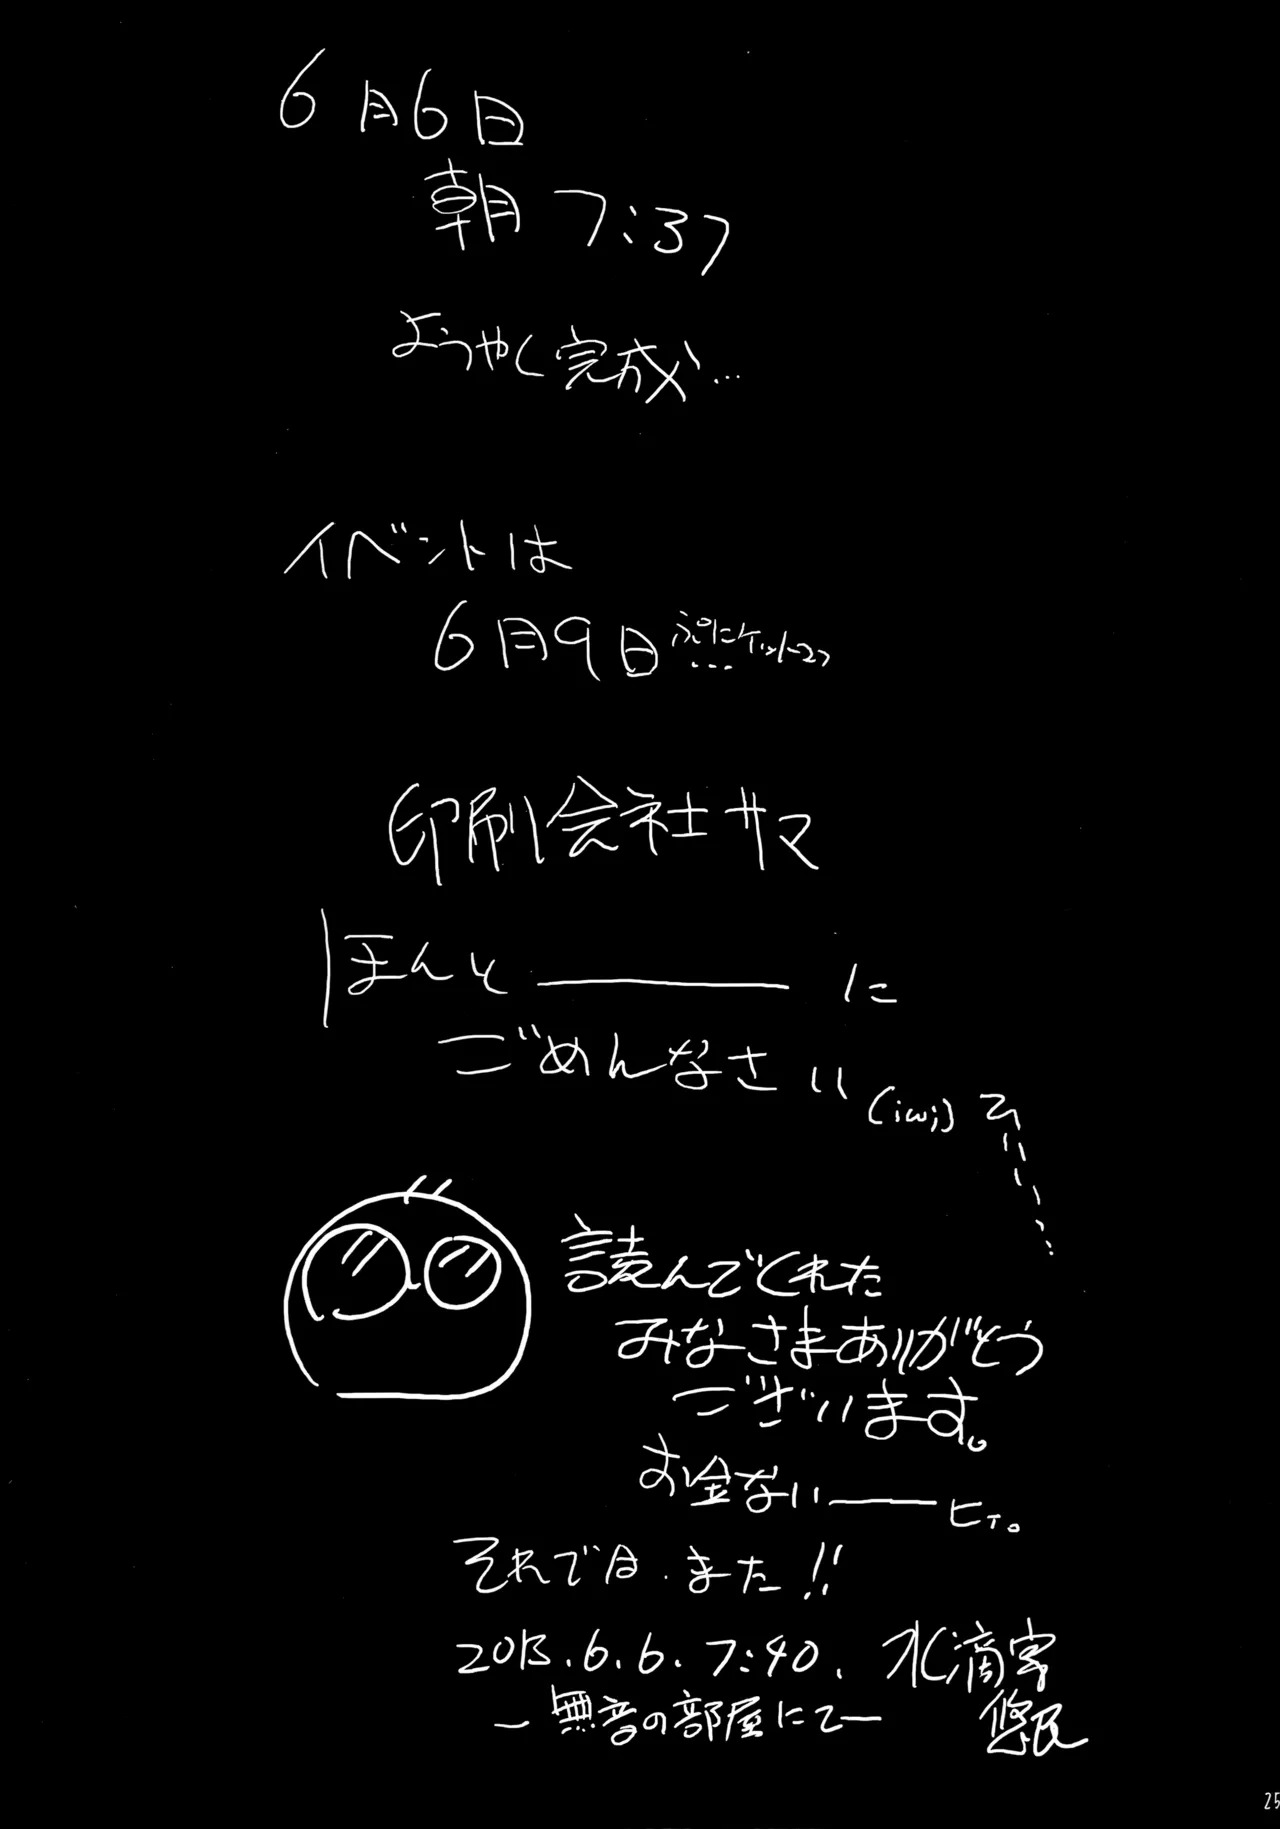 6月6日
朝 7:37
ようやく完成…
イベントは
6月9日 ぷにケット27
…
印刷会社サマ
ほんと────に
ごめんなさい (;ω;)
読んでくれた
みなさまありがとう
ございます。
お金ない───
それでは.また!!
2013.6.6. 7:40. 水滴
─無音の部屋にて─ 悠民
25